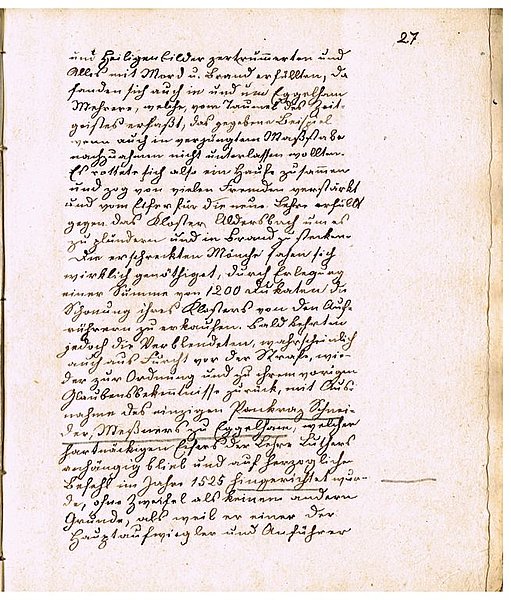 27
und Heiligenbilder zertrümmerten und
Alles mit Mord u. Brand erfüllten, da
fanden sich auch in und um Eggelham
Mehrere, welche, vom Taumel des Zeit-
geistes erfaßt, das gegebene Beispiel
wenn auch in verjüngtem Maßstabe
nachzuahmen nicht unterlassen wollten.
Es rottete sich also ein Haufe zusamen
und zog von vielen Fremden verstärkt
und vom Eifer für die neue Lehre erfüllt
gegen das Kloster Aldersbach um es
zu plündern und in Brand zu stecken.
Die erschreckten Mönche sahen sich
wirklich genöthiget, durch Erlegung
einer Summe von 1200 Dukaten die
Schonung ihres Klosters von den Auf-
rührern zu erkaufen. Bald kehrten
jedoch die Verblendeten, wahrscheinlich
auch aus Furcht vor der Strafe, wie-
der zur Ordnung und zu ihrem vorigen
Glaubensbekenntnisse zurück, mit Aus-
nahme des einzigen Pankraz Schnei-
der, Meßners zu Eggelham, welcher
hartnäckigen Eifers der Lehre Luthers
anhängig blieb und auf herzoglichen
Befehl im Jahre 1525 hingerichtet wur-
de, ohne Zweifel aus keinem andern
Grunde, als weil er einer der
Hauptaufwiegler und Anführer